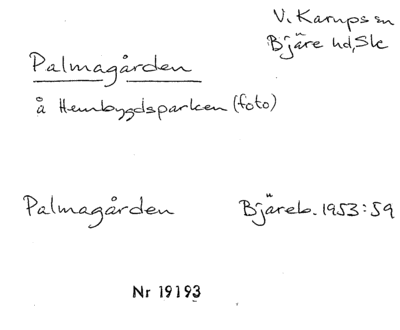 V. Karups sn
Bjäre hd, Sk
Palmagården
å Hembygdsparken (foto)
Palmagården Bjäreb. 1953:59
Nr 19193